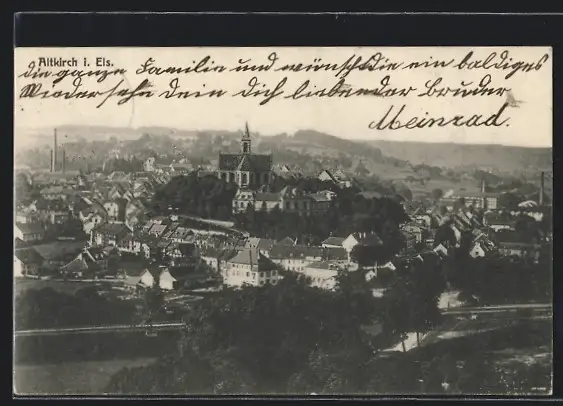 Altkirch i. Els.
die ganze Familie und wünscht Sie ein baldiges
Wiedersehn dein Dich liebender Bruder
Meinrad.